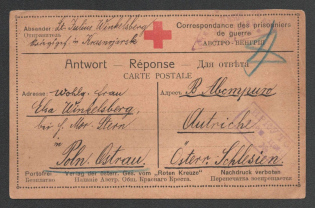 Absender: Lt. Julius Winkelsberg
Отправитель
Kriegsgef. in Krasnojarsk
Correspondance des prisonniers
de guerre
АВСТРО-ВЕНГРІЯ
Antwort — Réponse — Для отвѣта
CARTE POSTALE
Adresse: Wohlg. Frau
Else Winkelsberg,
bei Mor. Stern
in
Poln. Ostrau.
Адресъ:
Autriche
Österr. Schlesien.
Portofrei Verlag der österr. Ges. vom „Roten Kreuze“ Nachdruck verboten
Безплатно Изданіе Австр. Общ. Краснаго Креста. Перепечатка воспрещается